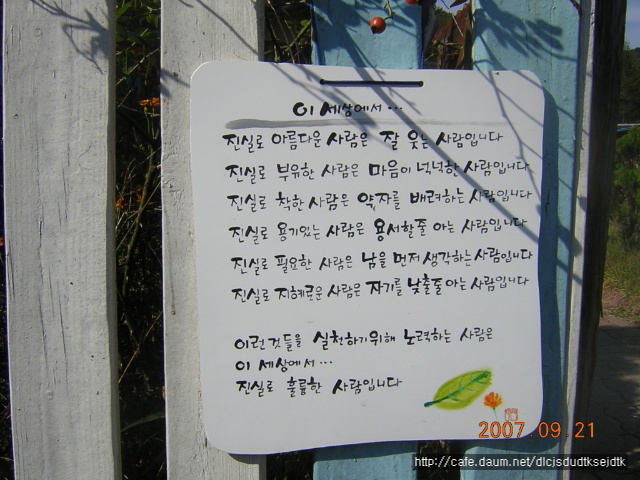 이 세상에서...
진실로 아름다운 사람은 잘 웃는 사람입니다
진실로 부유한 사람은 마음이 넉넉한 사람입니다
진실로 착한 사람은 약자를 배려하는 사람입니다
진실로 용기있는 사람은 용서할줄 아는 사람입니다
진실로 필요한 사람은 남을 먼저 생각하는 사람입니다
진실로 지혜로운 사람은 자기를 낮출줄 아는 사람입니다
이런것들을 실천하기위해 노력하는 사람은
이 세상에서...
진실로 훌륭한 사람입니다
2007.09.21
http://cafe.daum.net/dlcjsdudtksejdtk